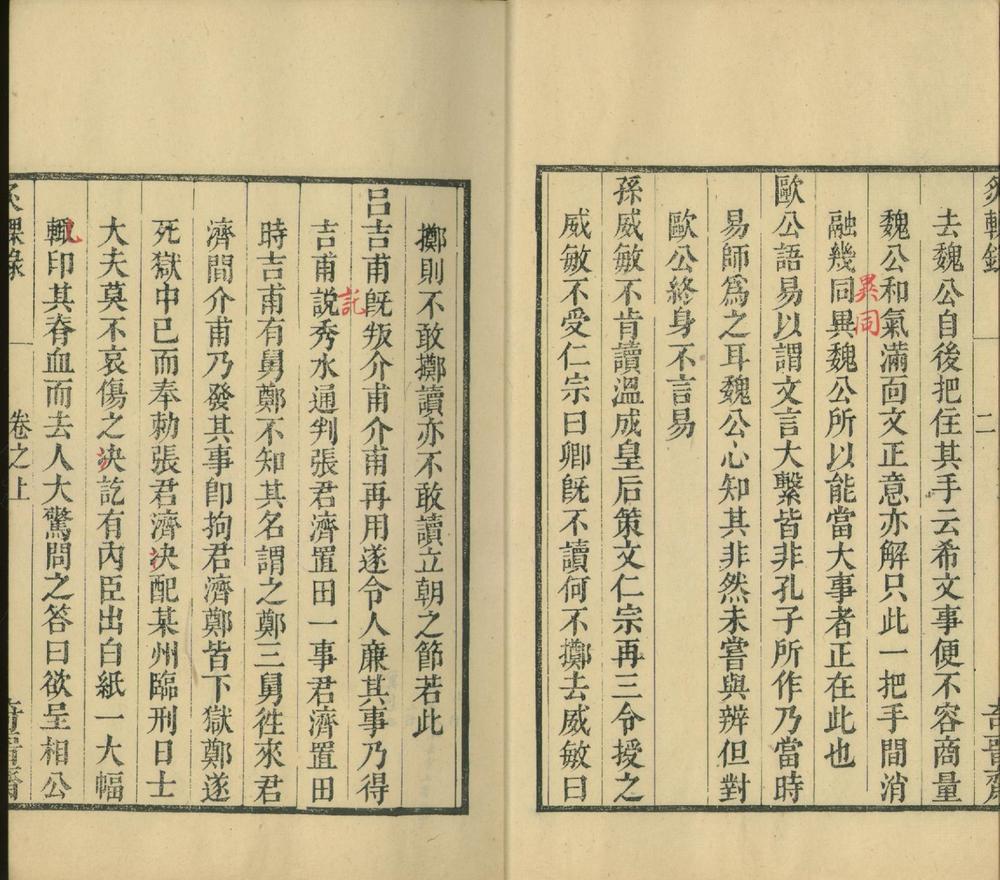 炙輠錄
二
去魏公自後把住其手云希文事便不容商量
魏公和氣滿面文正意亦解只此一把手間消
融幾同異魏公所以能當大事者正在此也
異同
歐公語易以謂文言大繫皆非孔子所作乃當時
易師爲之耳魏公心知其非然未嘗與辨但對
歐公終身不言易
孫威敏不肯讀溫成皇后策文仁宗再三令授之
威敏不受仁宗曰卿旣不讀何不擲去威敏曰
擲則不敢擲讀亦不敢讀立朝之節若此
呂吉甫旣叛介甫介甫再用遂令人廉其事乃得
吉甫說秀水通判張君濟置田一事君濟置田
託
時吉甫有舅鄭不知其名謂之鄭三舅徃來君
濟間介甫乃發其事卽拘君濟鄭皆下獄鄭遂
死獄中已而奉勑張君濟决配某州臨刑日士
大夫莫不哀傷之决訖有內臣出白紙一大幅
輒印其脊血而去人大驚問之答曰欲呈相公
卷之上